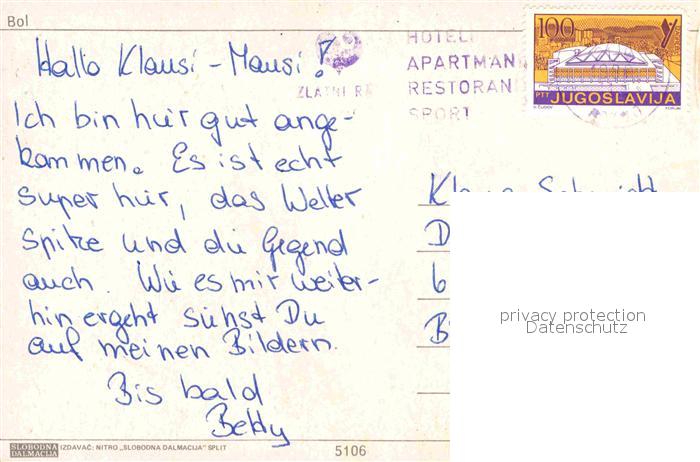 Bol
Hallo Klausi-Mausi!
Ich bin hier gut ange-
kommen. Es ist echt
super hier, das Wetter
Spitze und die Gegend
auch. Wie es mir weiter-
hin ergeht siehst Du
auf meinen Bildern.
Bis bald
Betty
HOTELI
APARTMAN
RESTORAN
SPORT
ZLATNI RA
100
PTT JUGOSLAVIJA
privacy protection
Datenschutz
SLOBODNA DALMACIJA IZDAVAČ: NITRO „SLOBODNA DALMACIJA" SPLIT
5106